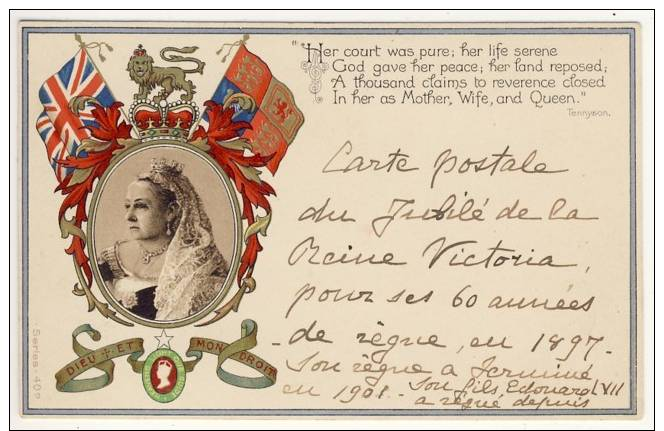 "Her court was pure; her life serene
God gave her peace; her land reposed;
A thousand claims to reverence closed
In her as Mother, Wife, and Queen."
Tennyson.
Carte postale
du Jubilé de la
Reine Victoria,
pour ses 60 années
de règne, en 1897.
Son règne a terminé
en 1901. Son fils, Edouard VII
a règné depuis
DIEU ET MON DROIT
Series 40